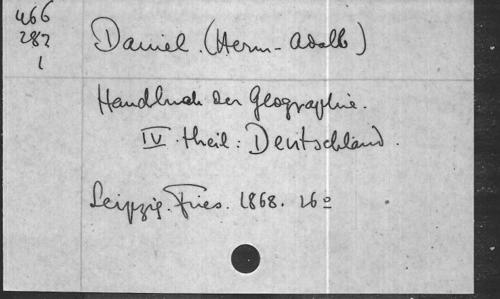 466
282
1
Daniel. (Herm-Adolb)
Handbuch der Geographie.
IV. theil: Deutschland.
Leipzig. Fries. 1868. 16º